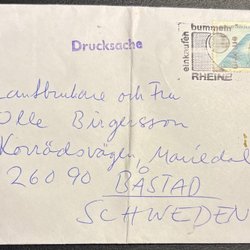 Drucksache
einkaufen
bummeln
RHEINE
Lantbrukare och Fru
Olle Birgersson
Korrödsvägen, Mariedal
260 90 BÅSTAD
SCHWEDEN